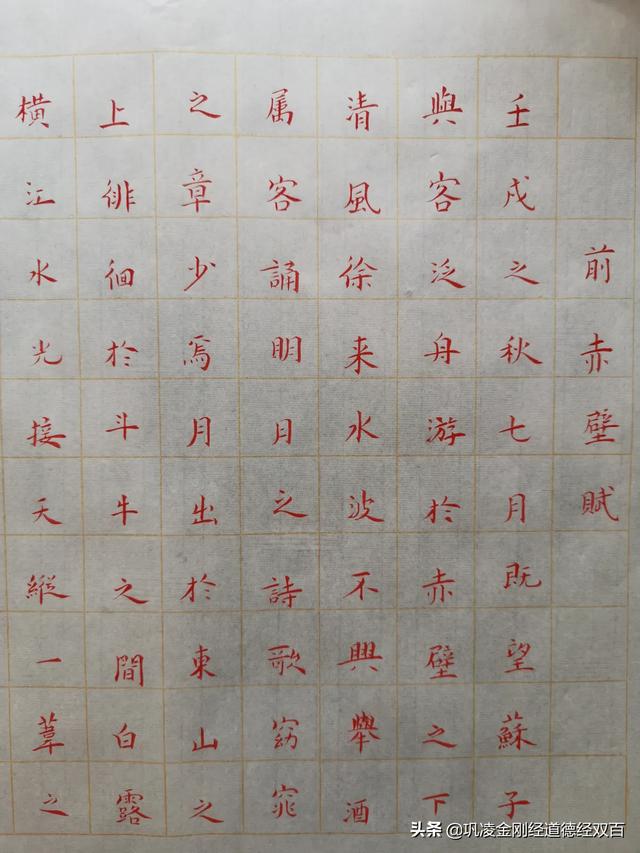 前赤壁賦
壬戌之秋七月既望蘇子
與客泛舟游於赤壁之下
清風徐来水波不興舉酒
属客誦明月之詩歌窈窕
之章少焉月出於東山之
上徘徊於斗牛之間白露
橫江水光接天縱一葦之
头条 @巩凌金刚经道德经双百